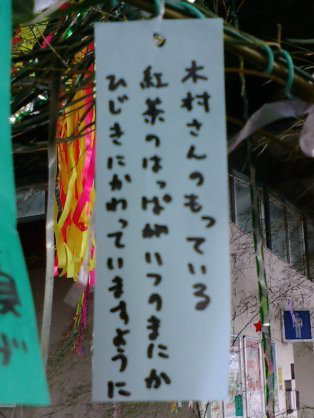 木村さんのもっている
紅茶のはっぱがいつのまにか
ひじきにかわっていますように
が